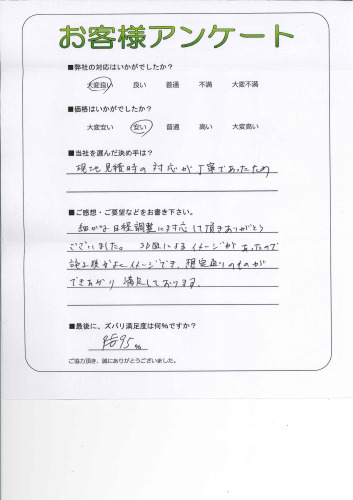 お客様アンケート
■弊社の対応はいかがでしたか?
大変良い 良い 普通 不満 大変不満
■価格はいかがでしたか?
大変安い 安い 普通 高い 大変高い
■当社を選んだ決め手は?
現地見積時の対応が丁寧であったため
■ご感想・ご要望などをお書き下さい。
細かな日程調整に対応して頂きありがとう
ございました。3D図によるイメージがあったので
施工後がよくイメージでき、想定通りのものが
できあがり満足しております。
■最後に、ズバリ満足度は何%ですか?
95%
ご協力頂き、誠にありがとうございました。